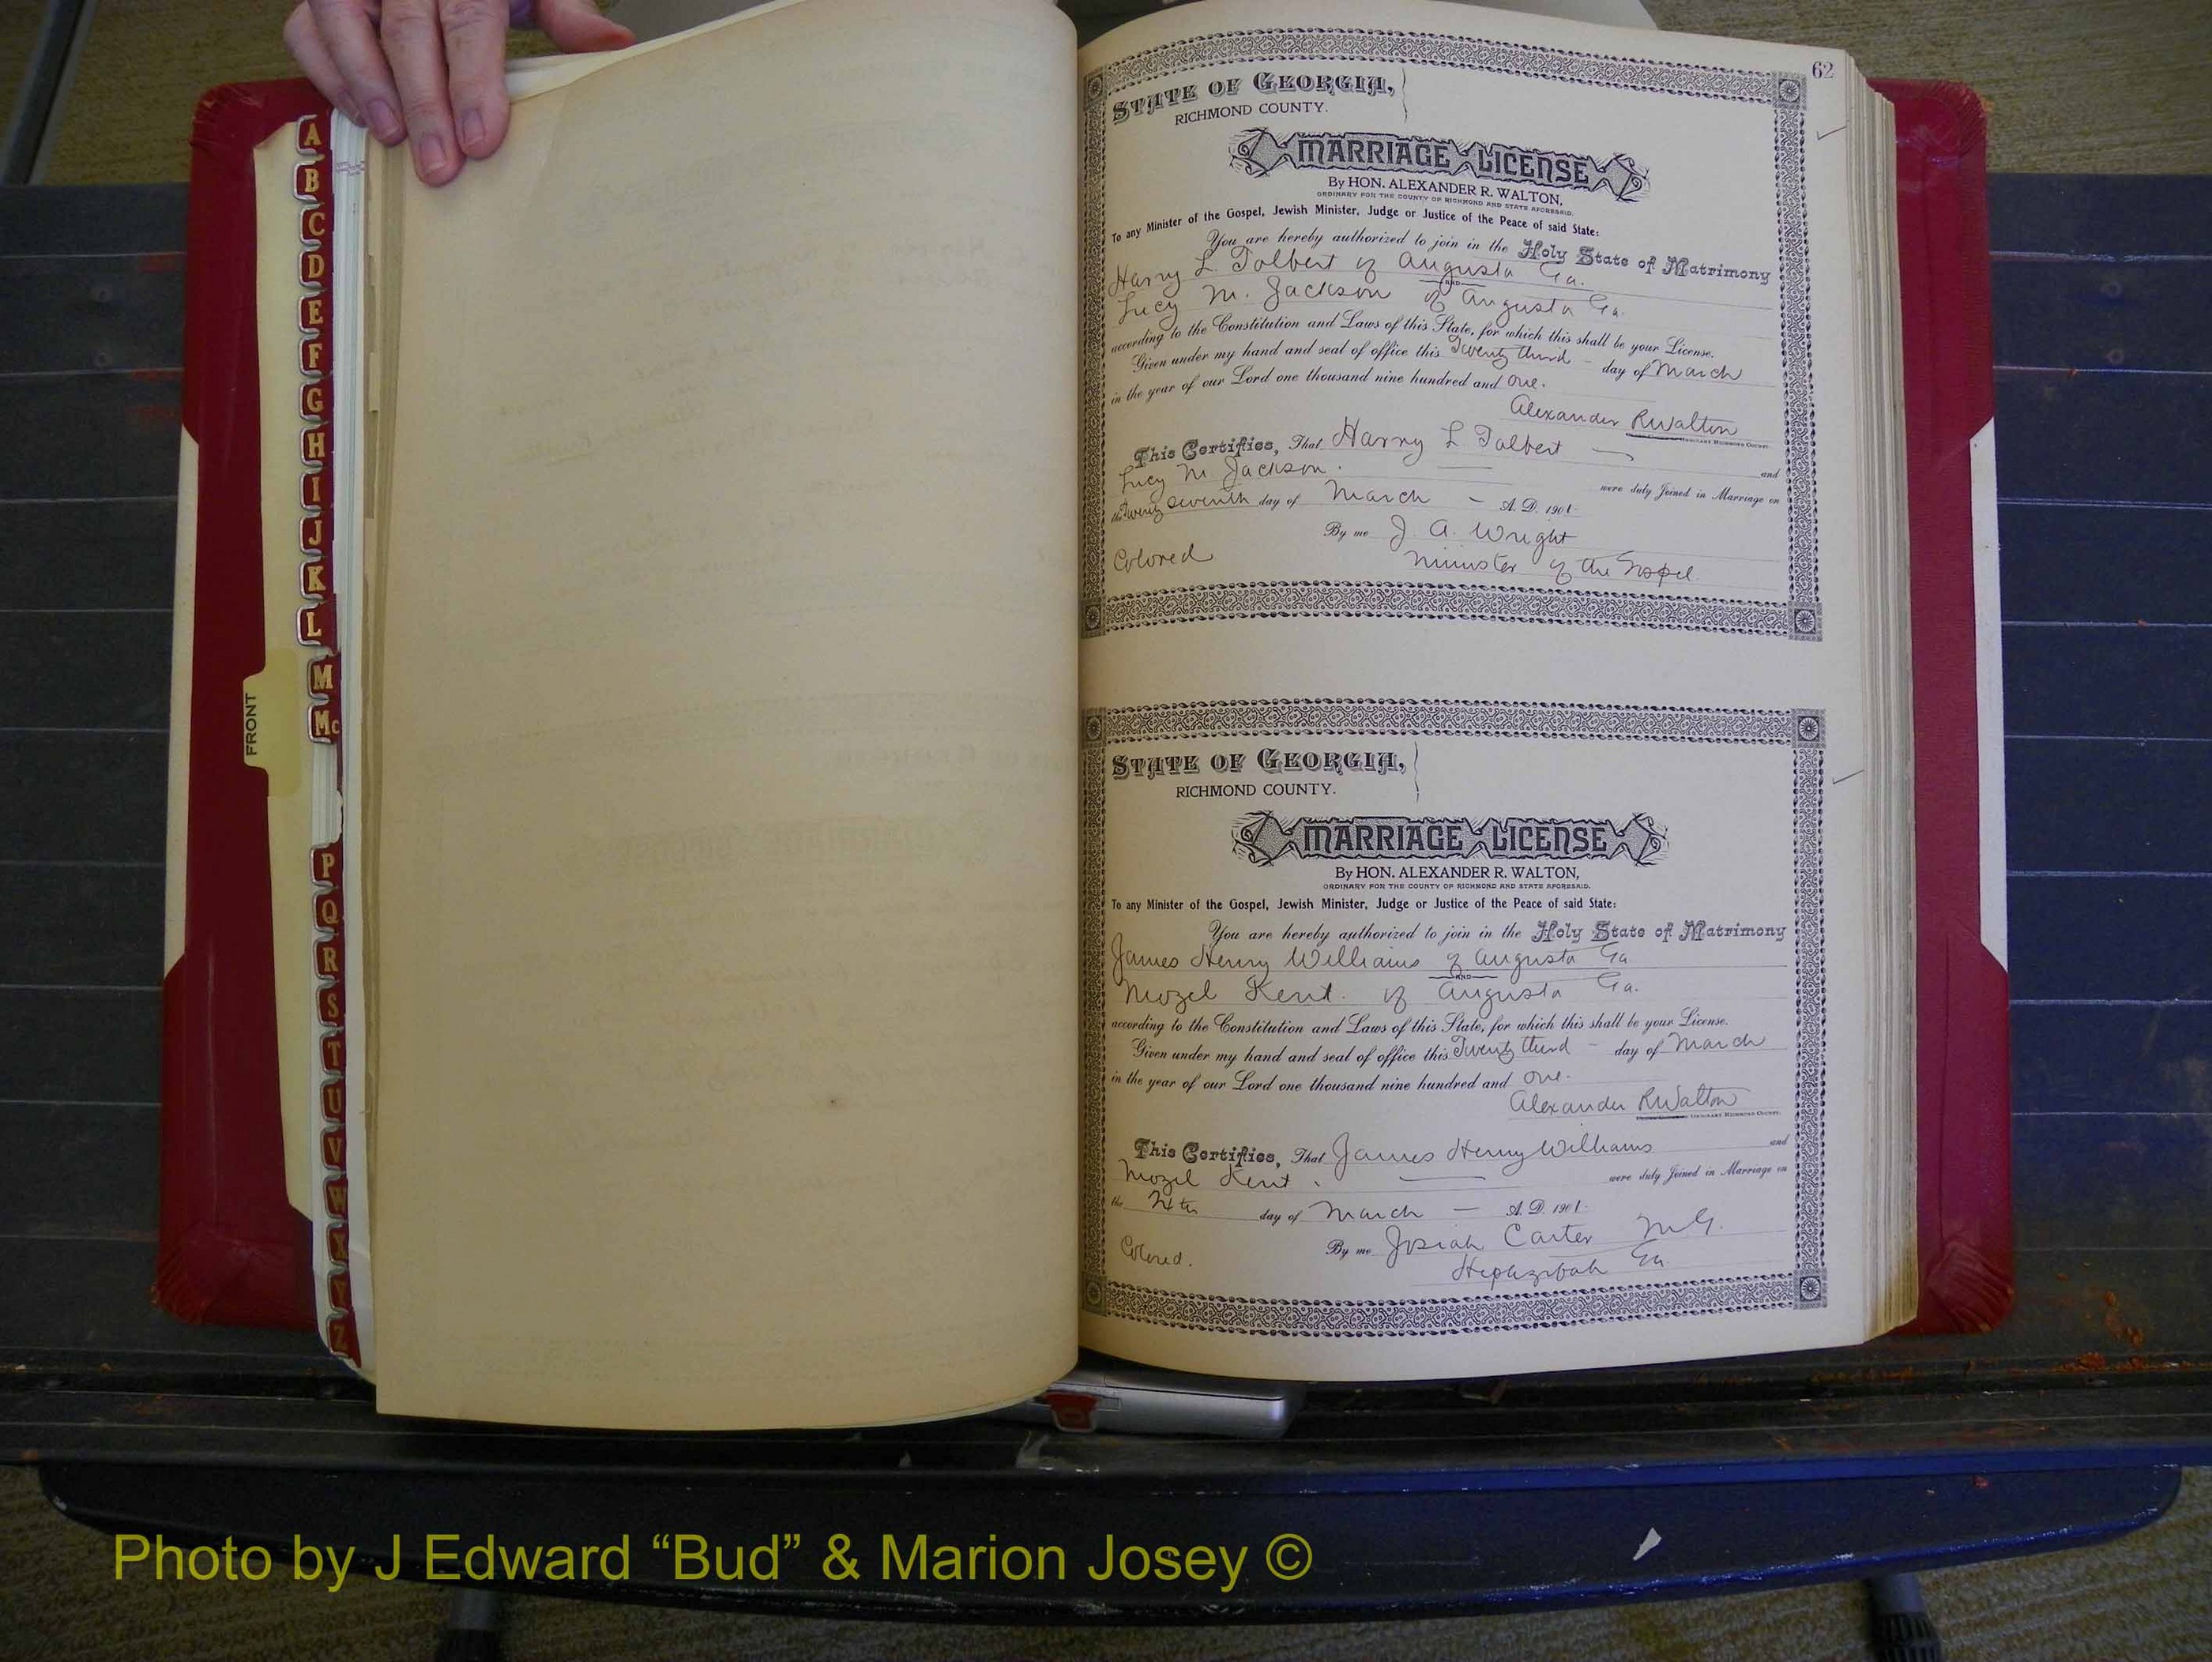 A
B
C
D
E
F
G
H
I
J
K
L
M
Mc
P
Q
R
S
T
U
V
W
X
Y
Z
FRONT
62
STATE OF GEORGIA,
RICHMOND COUNTY.
MARRIAGE LICENSE
By HON. ALEXANDER R. WALTON,
ORDINARY FOR THE COUNTY OF RICHMOND AND STATE AFORESAID.
To any Minister of the Gospel, Jewish Minister, Judge or Justice of the Peace of said State:
You are hereby authorized to join in the Holy State of Matrimony
Harry L. Tolbert of Augusta Ga.
AND
Lucy M. Jackson of Augusta Ga.
according to the Constitution and Laws of this State, for which this shall be your License.
Given under my hand and seal of office this Twenty third - day of March
in the year of our Lord one thousand nine hundred and one.
Alexander R Walton
ORDINARY RICHMOND COUNTY.
This Certifies, That Harry L Tolbert
and
Lucy M. Jackson. were duly Joined in Marriage on
the Twenty seventh day of March - A. D. 1901.
By me J. A. Wright
Colored Minister of the Gospel.
STATE OF GEORGIA,
RICHMOND COUNTY.
MARRIAGE LICENSE
By HON. ALEXANDER R. WALTON,
ORDINARY FOR THE COUNTY OF RICHMOND AND STATE AFORESAID.
To any Minister of the Gospel, Jewish Minister, Judge or Justice of the Peace of said State:
You are hereby authorized to join in the Holy State of Matrimony
James Henry Williams of Augusta Ga
AND
Mozel Kent. of Augusta Ga.
according to the Constitution and Laws of this State, for which this shall be your License.
Given under my hand and seal of office this Twenty third - day of March
in the year of our Lord one thousand nine hundred and one.
Alexander R Walton
ORDINARY RICHMOND COUNTY.
This Certifies, That James Henry Williams and
Mozel Kent. were duly Joined in Marriage on
the 24th day of March - A. D. 1901.
By me Josiah Carter M.G.
Colored. Hephzibah Ga.
Photo by J Edward “Bud” & Marion Josey ©